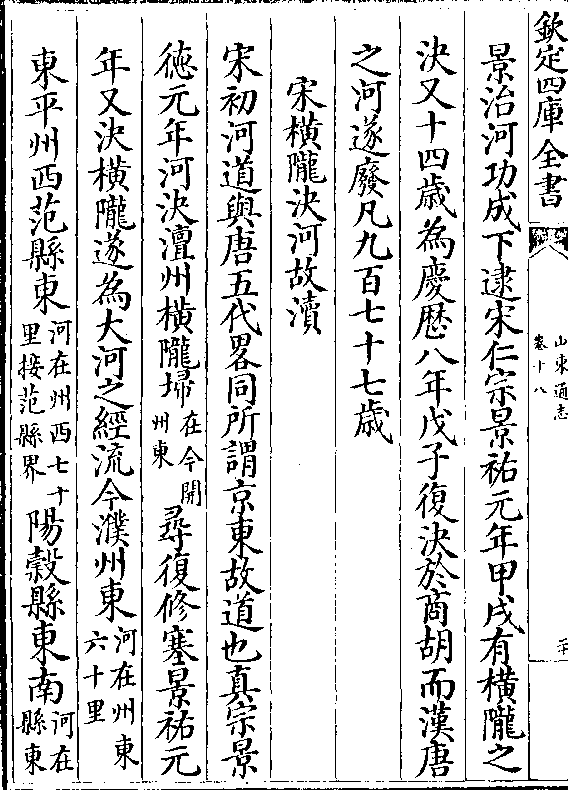 欽定四庫全書
山東通志
卷十八
二十
景治河功成下逮宋仁宗景祐元年甲戌有橫隴之
決又十四歲為慶歷八年戊子復決於商胡而漢唐
之河遂廢凡九百七十七歲
宋橫隴決河故瀆
宋初河道與唐五代畧同所謂京東故道也真宗景
徳元年河決澶州橫隴埽在今開州東尋復修塞景祐元
年又決橫隴遂為大河之經流今濮州東河在州東六十里
東平州西范縣東河在州西七十里接范縣界陽穀縣東南河在縣東